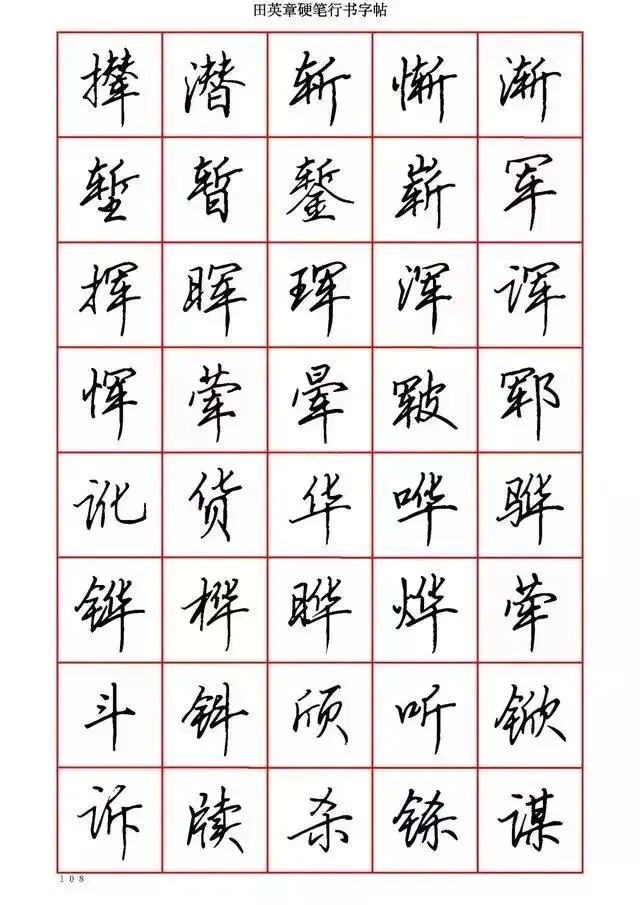 田英章硬笔行书字帖
撵 潜 斩 惭 渐
堑 暂 錾 崭 军
挥 晖 珲 浑 诨
恽 荤 晕 皲 郓
讹 货 华 哗 骅
铧 桦 晔 烨
斗 钭 颀 听 锨
诉 牍 杀 铩 谋
108